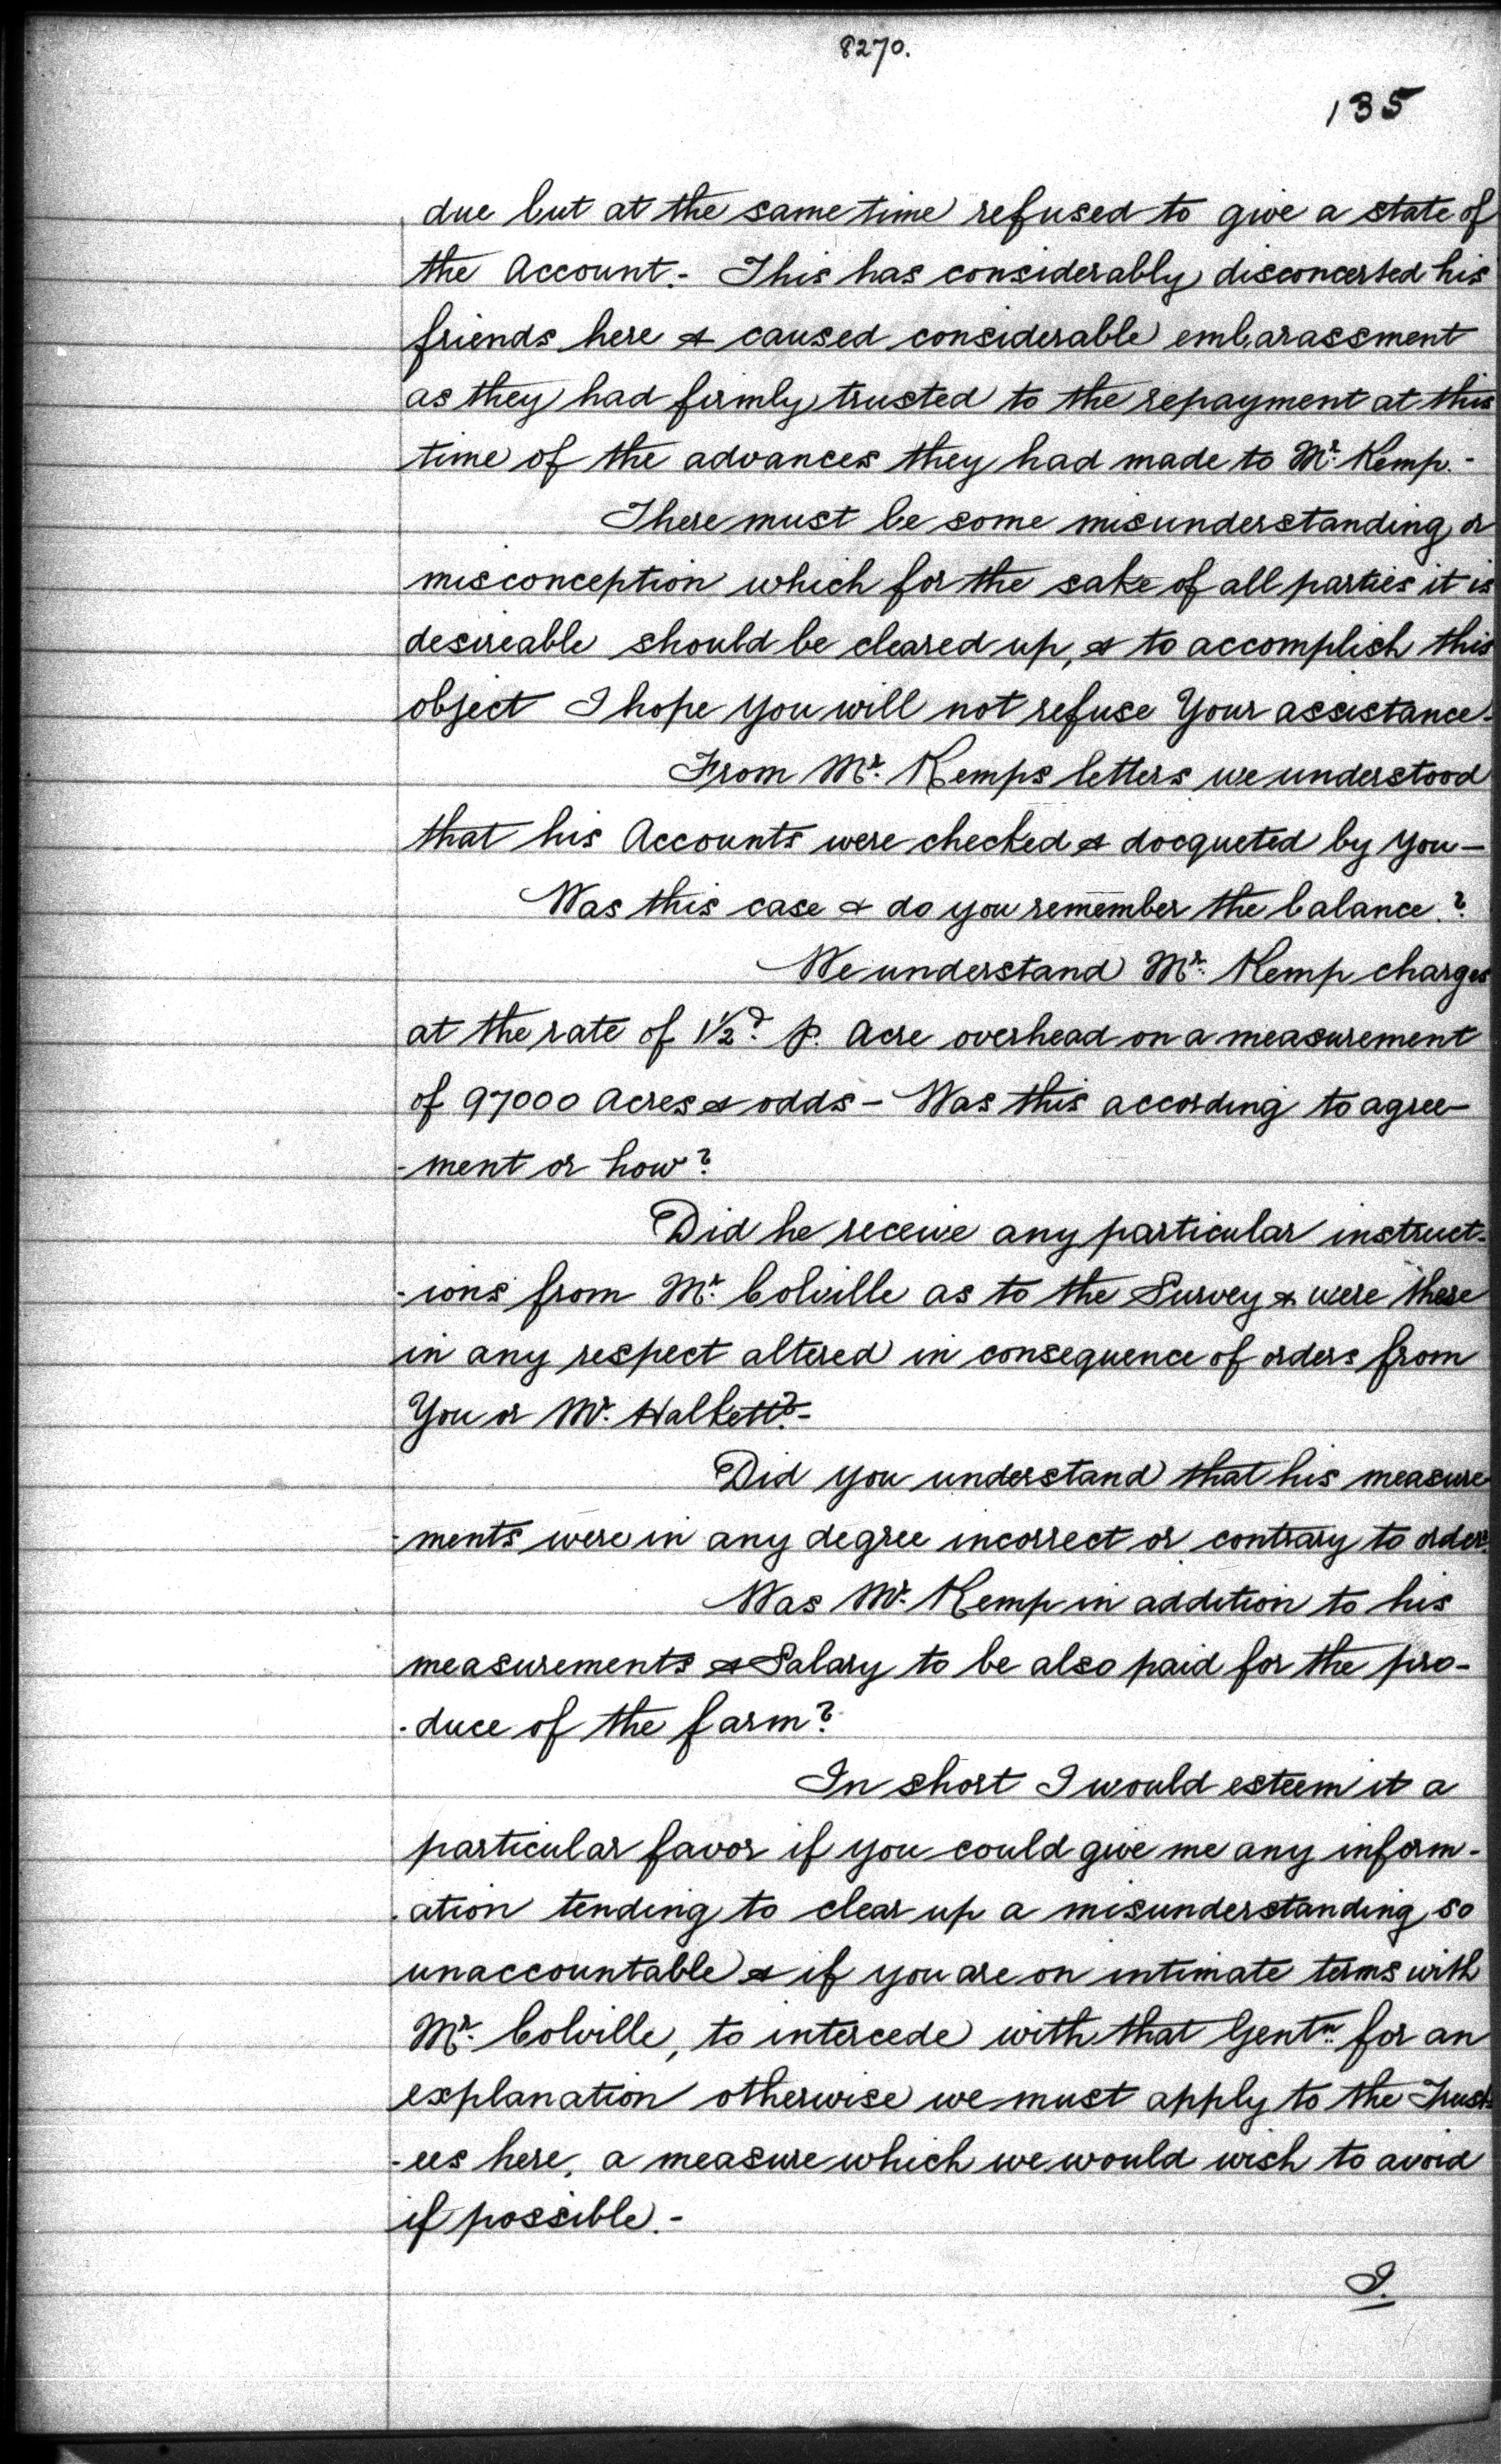 8270.
135
due but at the same time refused to give a state of
the Account.- This has considerably disconcerted his
friends here & caused considerable embarassment
as they had firmly trusted to the repayment at this
time of the advances they had made to Mr. Kemp.-
There must be some misunderstanding or
misconception which for the sake of all parties it is
desireable should be cleared up, & to accomplish this
object I hope you will not refuse Your assistance.
From Mr. Kemps letters we understood
that his Accounts were checked & docqueted by you -
Was this case & do you remember the balance.?
We understand Mr. Kemp charges
at the rate of 1½d. p. Acre overhead on a measurement
of 97000 Acres & odds - Was this according to agree-
-ment or how?
Did he receive any particular instruct-
-ions from Mr. Colville as to the Survey & were these
in any respect altered in consequence of orders from
You or Mr. Halkett?-
Did you understand that his measure
-ments were in any degree incorrect or contrary to order.
Was Mr. Kemp in addition to his
measurements & Salary to be also paid for the pro-
-duce of the farm?
In short I would esteem it a
particular favor if you could give me any inform-
-ation tending to clear up a misunderstanding so
unaccountable & if you are on intimate terms with
Mr. Colville, to intercede with that Gentn. for an
explanation otherwise we must apply to the Trust-
-ees here, a measure which we would wish to avoid
if possible.-
I.